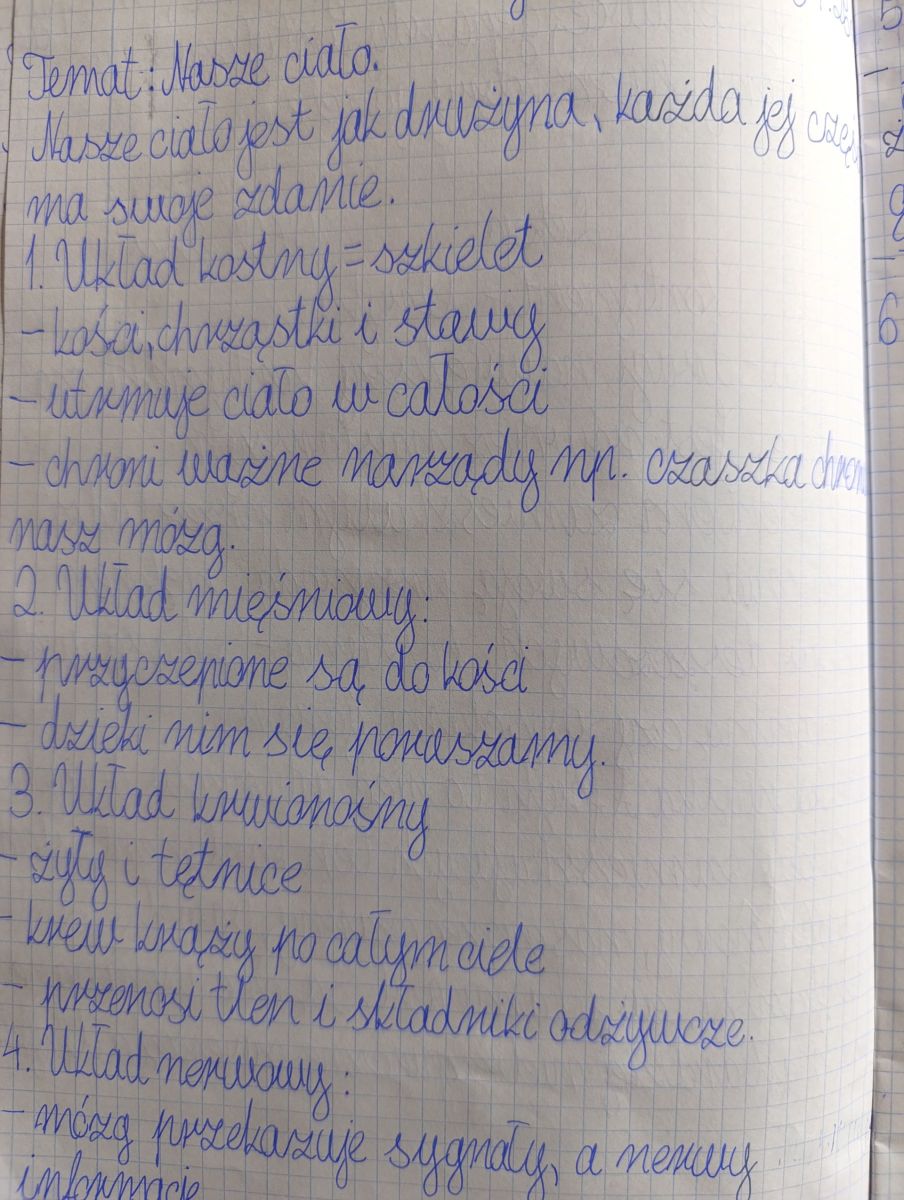 Temat: Nasze ciało.
Nasze ciało jest jak drużyna, każda jej
ma swoje zdanie.
1. Układ kostny = szkielet
- kości, chrząstki i stawy
- utrmuje ciało w całości
- chroni ważne narządy np. czaszka chroni
nasz mózg.
2. Układ mięśniowy:
- przyczepione są do kości
- dzięki nim się poruszamy.
3. Układ krwionośny
- żyły i tętnice
- krew krąży po całym ciele
- przenosi tlen i składniki odżywcze.
4. Układ nerwowy:
- mózg przekazuje sygnały, a nerwy
informacje
5
6